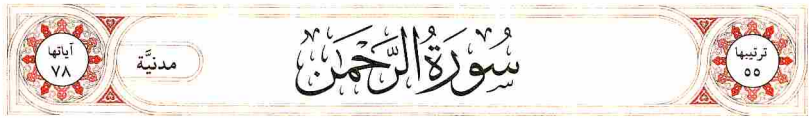 ترتيبها
٥٥
سُورَةُ الرَّحْمَٰن
مدنيَّة
آياتها
٧٨